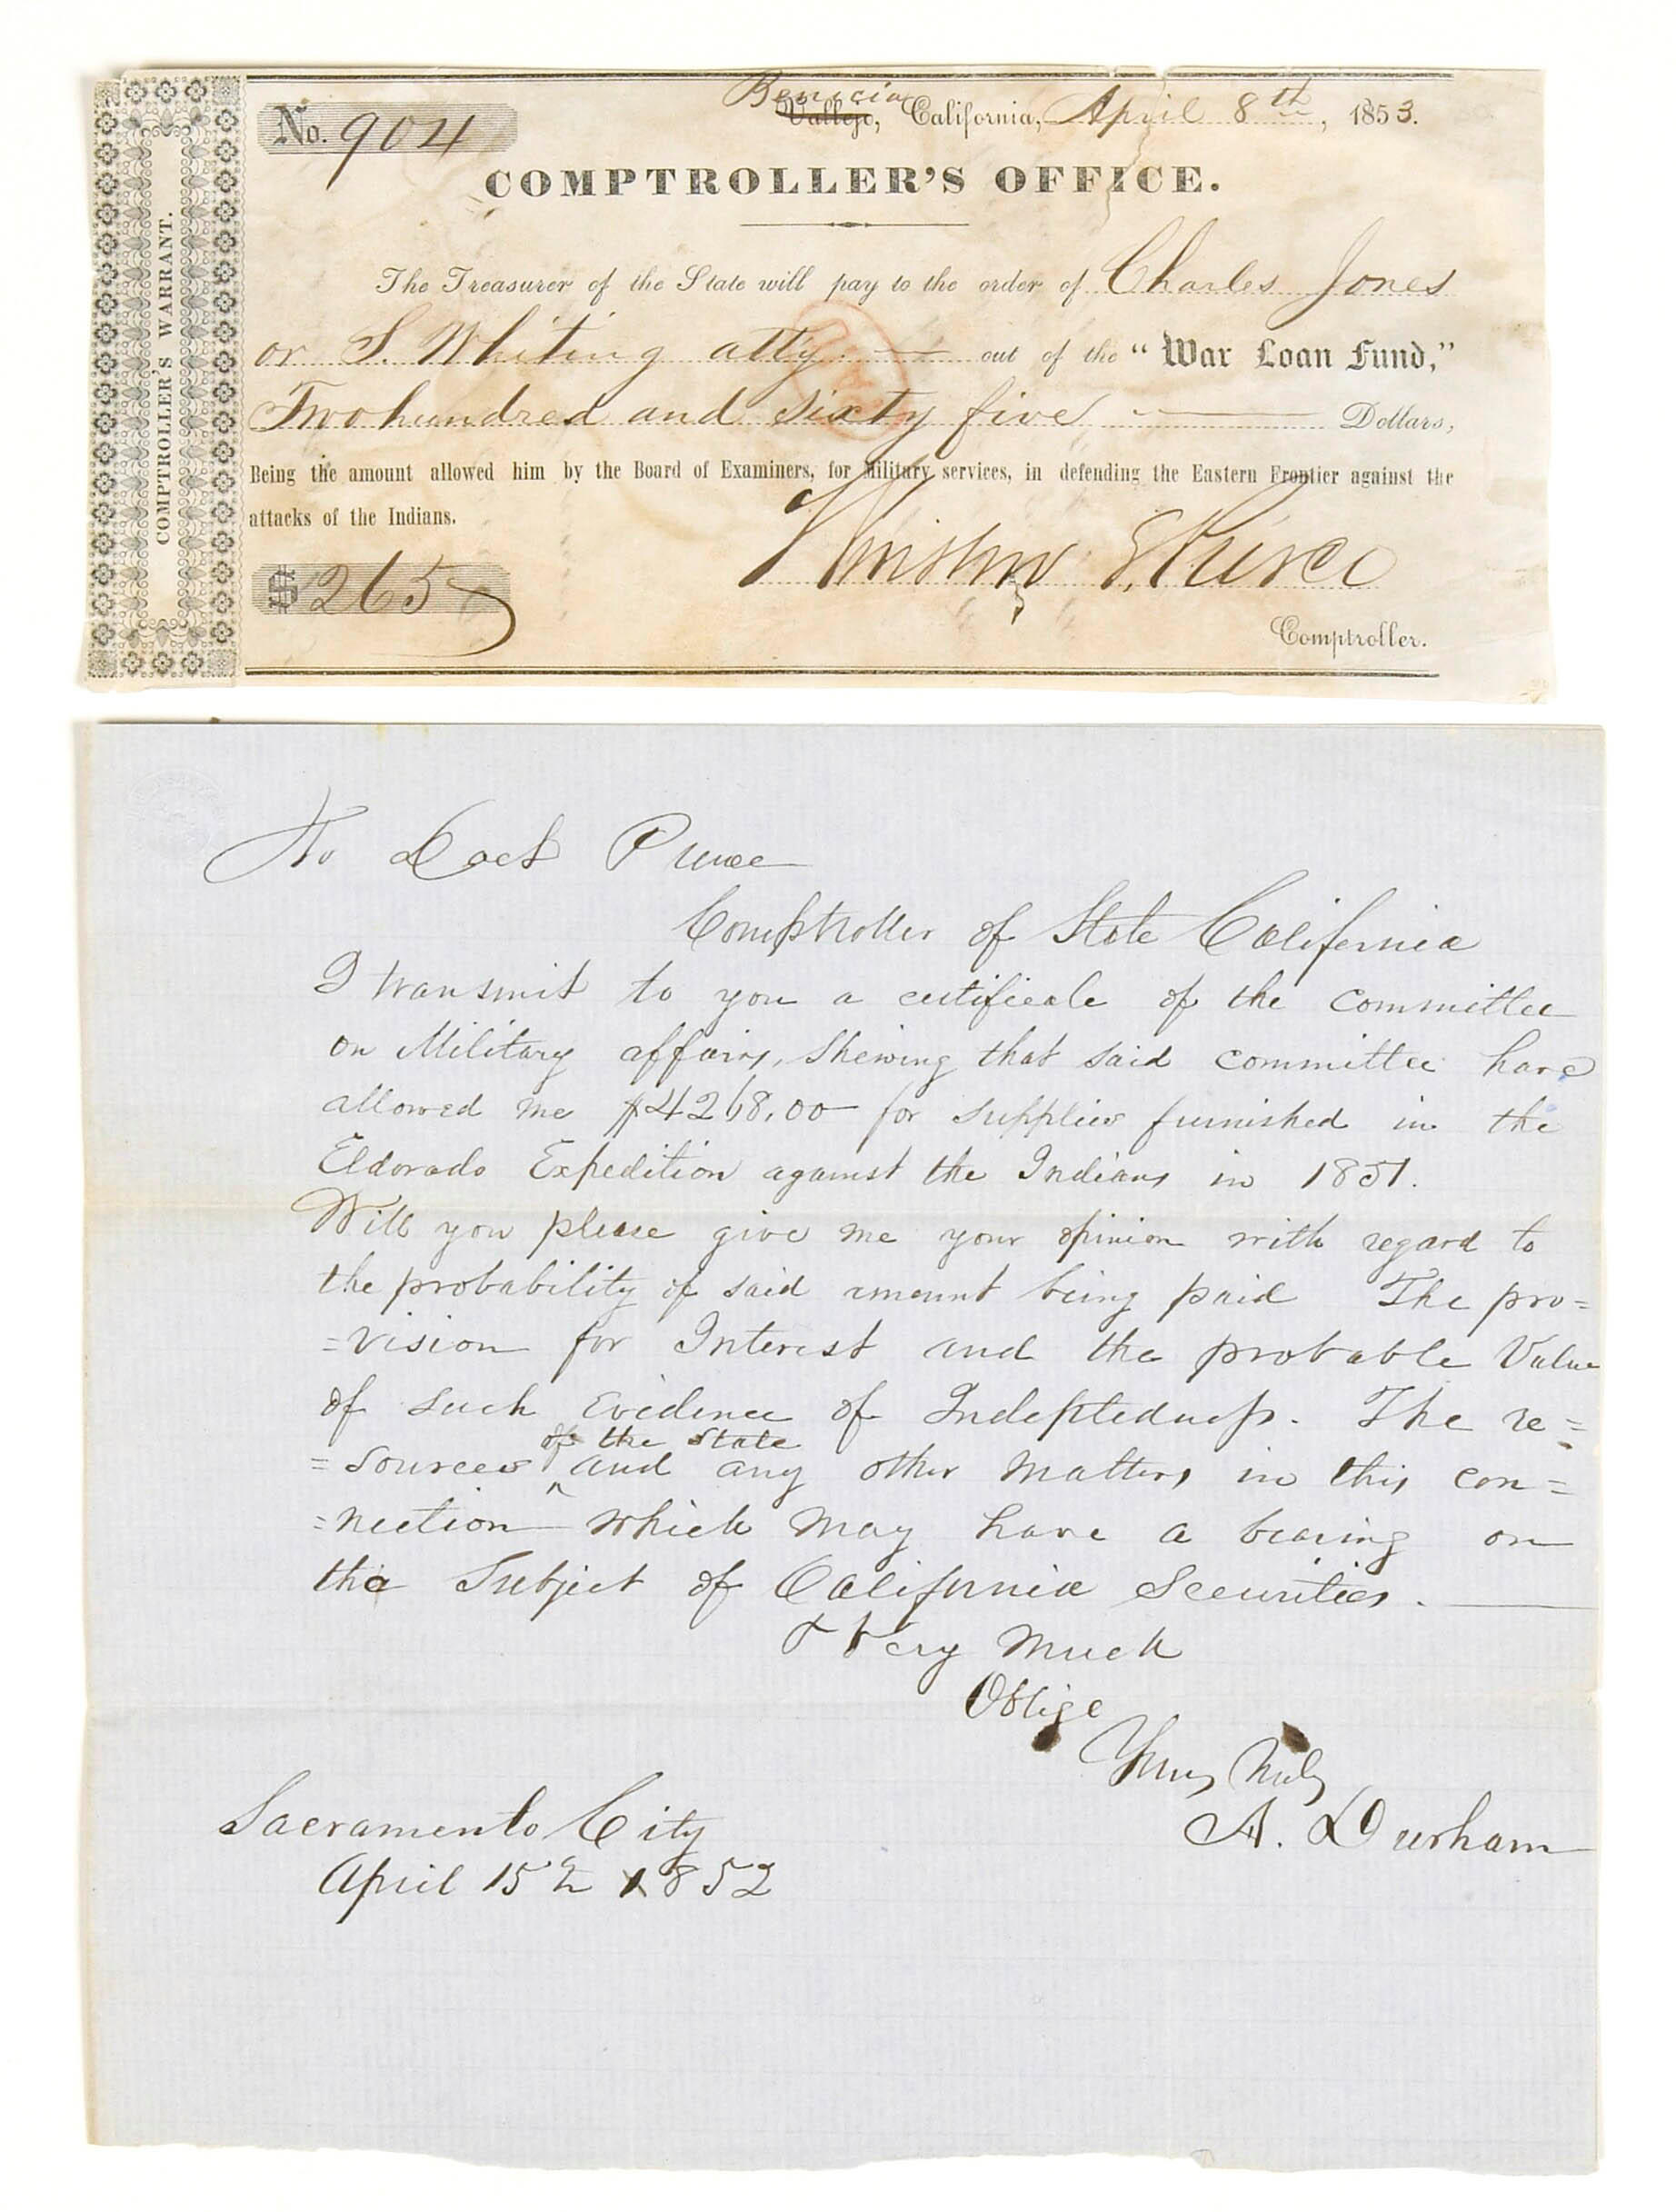 COMPTROLLER'S WARRANT.
No. 904
Benicia
Vallejo, California, April 8th, 1853.
COMPTROLLER'S OFFICE.
The Treasurer of the State will pay to the order of Charles Jones
or S. Whiting atty out of the "War Loan Fund,"
Two hundred and sixty five Dollars,
Being the amount allowed him by the Board of Examiners, for Military services, in defending the Eastern Frontier against the
attacks of the Indians.
$265
Winslow S. Pierce
Comptroller.
To Doct Pierce
Comptroller of State California
I transmit to you a certificate of the Committee
on Military affairs, Shewing that said committee have
allowed me $4268.00 for supplies furnished in the
Eldorado Expedition against the Indians in 1851.
Will you please give me your opinion with regard to
the probability of said amount being paid The pro=
=vision for Interest and the probable Value
of such Evidence of Indeptedness. The re=
of the State
=sources ^ and any other Matters in this con=
=nection which may have a bearing on
the Subject of California Securities.
& Very Much
Oblige
Yours Truly
A. Durham
Sacramento City
April 15 1852